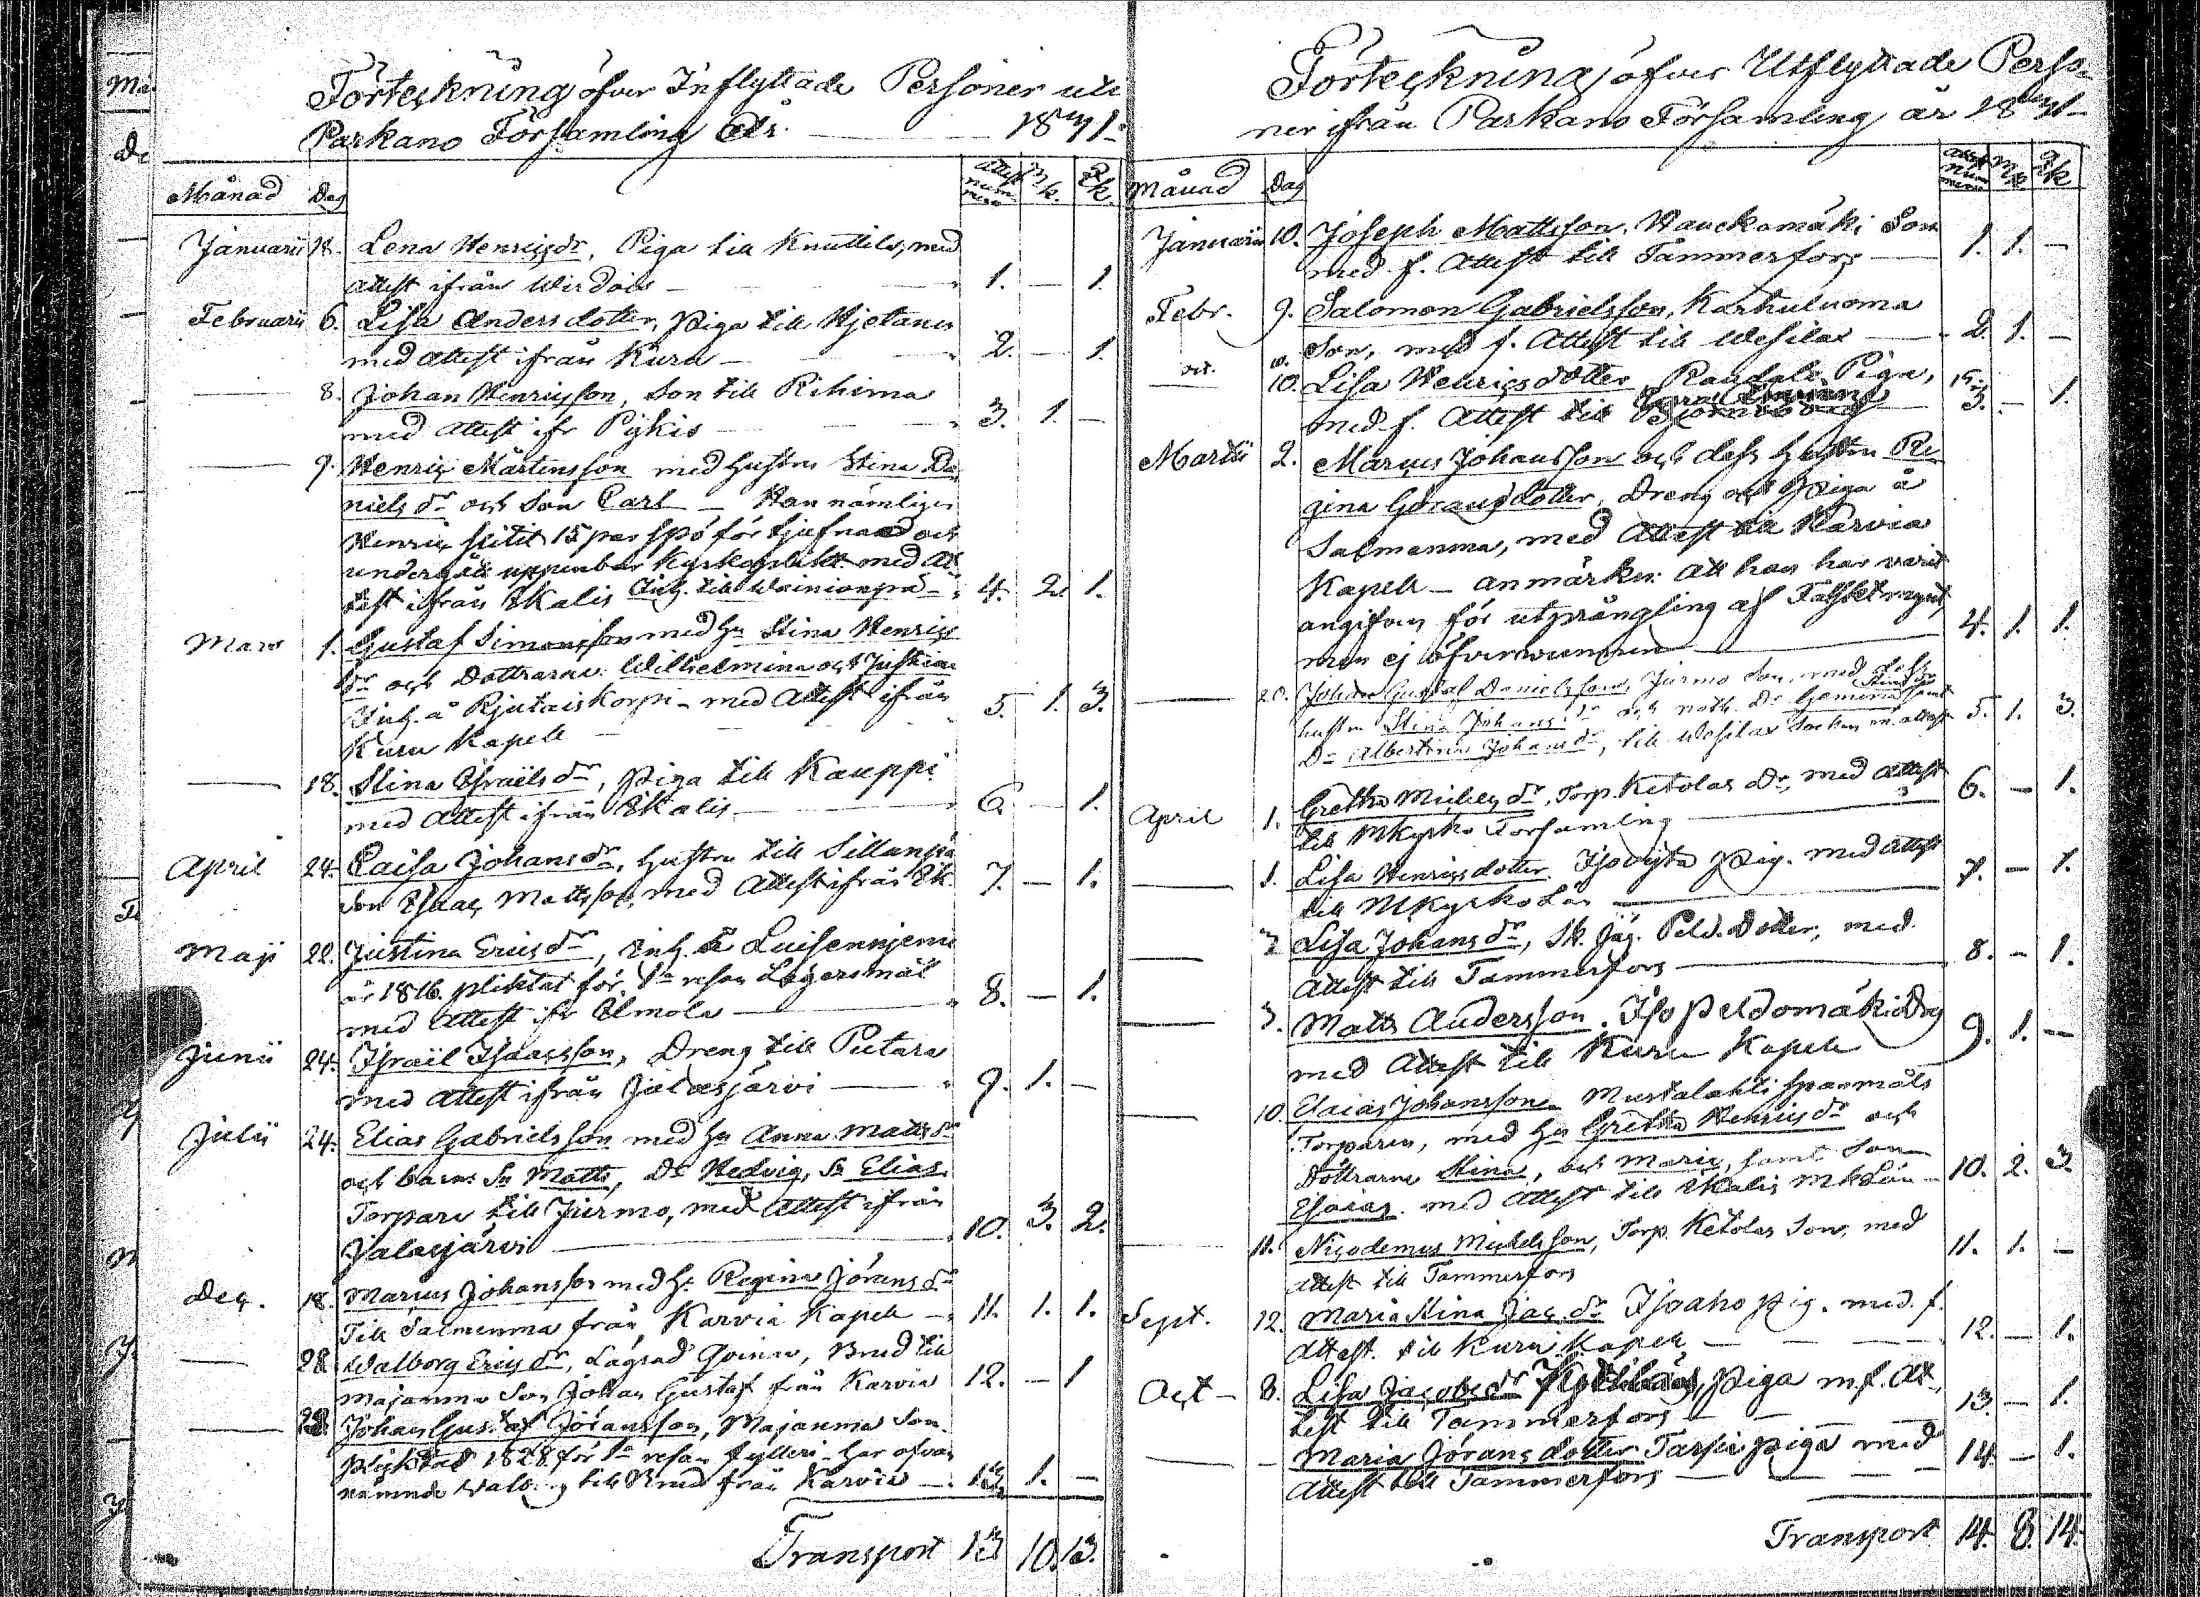 Förteckning öfver Inflyttade Personer uti
Parkano Församling
Månad Dag Attest nummer Mk. Qk.
Januarii 18. Lena Henricsdr, Piga till Knuttila, med
attest ifrån Wirdois 1. — 1.
Februarii 6. Lisa Andersdotter, Piga till
med attest ifrån Kuru 2. — 1.
8. Johan Henricsson, Son till Rihima
med attest ifr Pijkis 3. 1. —
9. Henric Mårtensson med hustru Stina Da
niels dr och Son Carl — Han nämligen
Henric slitit 15 par spö för tjufnad och
undergått uppenbar Kyrkoplikt med At
test ifrån Ikalis Inh. till 4. 2. 1.
Mars 1. Gustaf Simonsson med hu Stina Henrics
dr och Dottrarne Wilhelmina och Justina
Inh. å med Attest ifrån
Kuru Kapell 5. 1. 3.
18. Stina Esraels dr, Piga till Kauppi
med Attest ifrån Ikalis 6. — 1.
April 24. Caisa Johans dr, hustru till Sillanpä
Son Isaac Mattsson, med Attest ifrån Ik. 7. — 1.
Maji 22. Justina Erics dr, Inh.
år 1816. pliktat för 1a resan Lägersmål
med attest ifr Elmola 8. — 1.
Junii 24. Israel Isaacsson, Dreng till
med attest ifrån Jalasjärvi 9. 1. —
Julii 24. Elias Gabrielsson med hu Anna Matts dr
och barn Sn Matts, Dr Hedvig, Sn Elias.
Torpare till Jurmo, med Attest ifrån
Jalasjärvi 10. 3. 2.
Dec. 18. Marcus Johansson med hu Regina Jörans dr
Till Salmenma från Karvia Kapell 11. 1. 1.
28. Walborg Erics dr, Lägrad Qvinna, Brud till
Majanma Son Johan Gustaf från Karvia 12. — 1
28. Johan Gustaf Jöransson, Majanma Son
1828 för 1a resan fylleri har ofvan
nämnde Walb. till Brud från Karvia 13. 1. —
Transport 13 10. 13.
Förteckning öfver Utflyttade Perso-
ner ifrån Parkano Församling år
Månad Dag Attest nummer Mk Qk
Januarii 10. Joseph Mattsson, Hauckamäki Son
med f. Attest till Tammerfors 1. 1. —
Febr. 9. Salomon Gabrielsson, Karhuluoma
Son, med f. Attest till Wesilax 2. 1. —
10. Lisa Henricsdotter, Piga,
med f. Attest till 3. — 1.
Martii 2. Marcus Johansson och dess hustru Re
gina Göransdotter, Dreng och Piga å
Salmenma, med Attest till Karvia
Kapell — anmärkn: att han har varit
angifven för utprångling af Falskt mynt,
men ej öfvervunnen 4. 1. 1.
20. Johan Gustaf Danielsson, Jurmo Son, med dess
hustru Stina Johans dr och
Dr Albertina Johans dr, till Wesilax Socken m. attest 5. 1. 3.
April 1. Gretha Michels dr, Torp. Ketolas Dr, med attest
till Mkyrko Församling 6. — 1.
1. Lisa Henricsdotter, Pig. med attest
till Mkyrko Län 7. — 1.
3 Lisa Johans dr, Sk. Dotter, med
Attest till Tammerfors 8. — 1.
3. Matts Andersson, Iso Peldomäki Dg
med Attest till Kuru Kapell 9. 1. —
10 Esaias Johansson Mustalahti Spanmåls
Torparen, med hu Gretha Henrics dr och
Dottrarne Stina, och Maria, samt Son
Esaias. med Attest till Ikalis 10. 2. 3.
11. Nicodemus Michelsson, Torp. Ketolas Son, med
attest till Tammerfors 11. 1. —
Sept. 12. Maria Stina Jac. dr Isoaho pig. med f.
Attest till Kuru Kapell 12. — 1.
Oct — 8. Lisa Jacobs dr Piga m. f. At-
test till Tammerfors 13. — 1.
Maria Jöransdotter piga med
Attest till Tammerfors 14. — 1.
Transport 14. 8. 14.